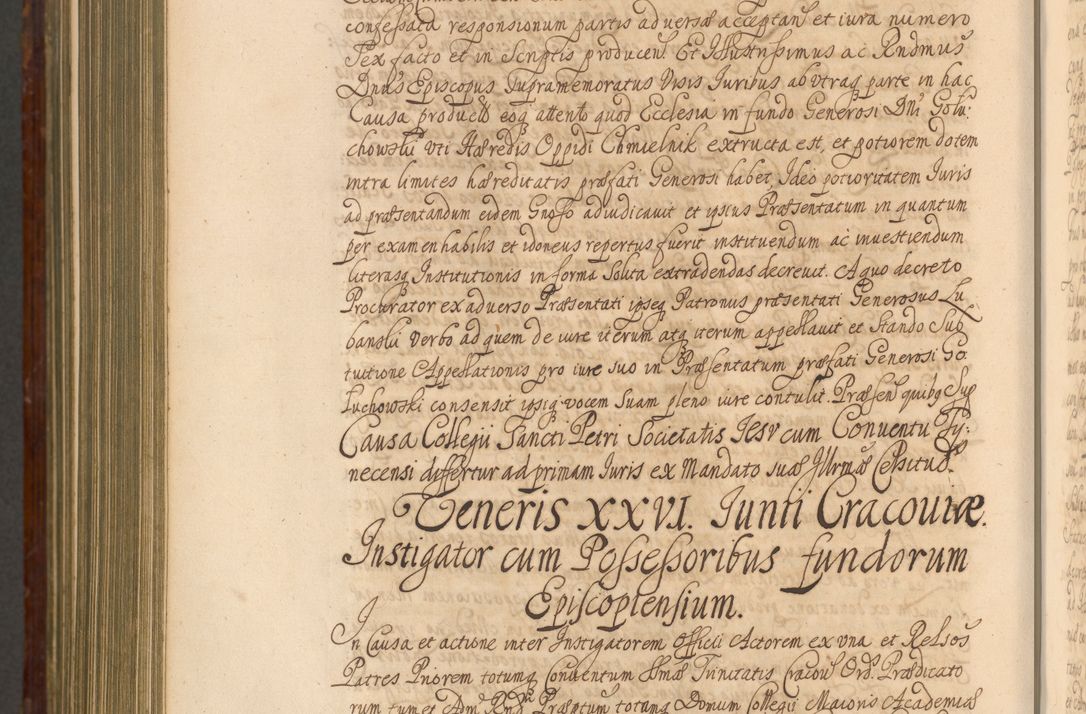 confessata responsionum partis adversæ acceptan et iura numero
Tex facto et in Scriptis producen. Et Illustrissimus ac Rndmus
Dnus Episcopus Supramemoratus Visis Juribus ab utraq parte in hac
Causa productis eoq attento quod Ecclesia in fundo Generosi Dni Golu:
chowski uti Hæredis Oppidi Chmielnik extructa est, et potiorem dotem
intra limites hæreditatis præfati Generosi habet, Ideo potioritatem Juris
ad præsentandum eidem Gnoso adiudicavit et ipsius Præsentatum in quantum
per examen habilis et idoneus repertus fuerit instituendum ac investiendum
literasq Institutionis in forma Solita extradendas decrevit. A quo decreto
Procurator ex adverso Præsentati ipseq Patronus præsentati Generosus Lu
banski verbo ad quem de iure iterum atq iterum appellavit et Stando Sub
tuitione Appellationis pro iure suo in Præsentatum præfati Generosi Go
luchowski consensit ipsiq vocem Suam pleno iure contulit. Præsen quibq Sup
Causa Collegii Sancti Petri Societatis Jesv cum Conventu Ty:
necensi differtur ad primam Juris ex Mandato suæ Illrmæ Celsitud.
Veneris XXVI. Junii Cracoviæ.
Instigator cum Possessoribus fundorum
Episcopiensium.
In Causa et actione inter Instigatorem Officii Actorem ex una et Relsos
Patres Priorem totumq Conventum Smæ Trinitatis Cracov Ord. Prædicato
rum tum et Adm Rnd Præptum totamq Domum Collegii Maioris Academiæ